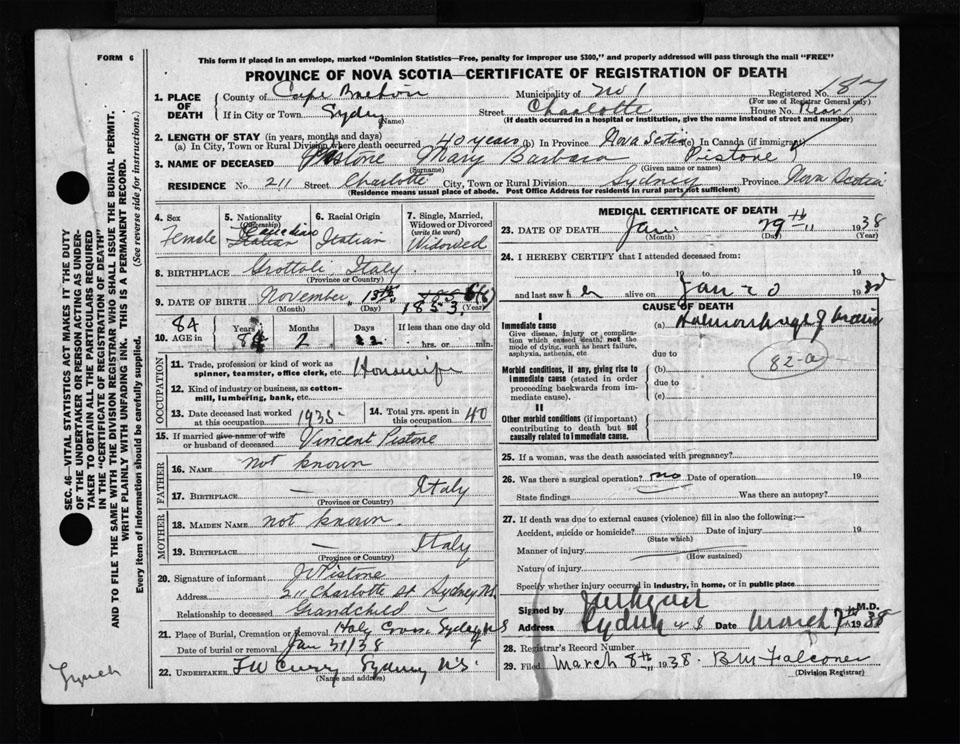 FORM 6
This form if placed in an envelope, marked "Dominion Statistics—Free, penalty for improper use $300," and properly addressed will pass through the mail "FREE"
PROVINCE OF NOVA SCOTIA—CERTIFICATE OF REGISTRATION OF DEATH
1. PLACE OF DEATH County of Cape Breton Municipality of No 1 Registered No. 187
(For use of Registrar General only)
If in City or Town Sydney (Name) Street Charlotte House No. Rear
(If death occurred in a hospital or institution, give the name instead of street and number)
2. LENGTH OF STAY (in years, months and days)
(a) In City, Town or Rural Division where death occurred 40 years (b) In Province Nova Scotia (c) In Canada (if immigrant)
3. NAME OF DECEASED Pistone Mary Barbara Pistone
(Surname) (Given name or names)
RESIDENCE No. 211 Street Charlotte City, Town or Rural Division Sydney Province Nova Scotia
(Residence means usual place of abode. Post Office Address for residents in rural parts not sufficient)
4. Sex Female
5. Nationality (Citizenship) Canadian Italian
6. Racial Origin Italian
7. Single, Married, Widowed or Divorced (write the word) Widowed
8. BIRTHPLACE Grottoli, Italy
(Province or Country)
9. DATE OF BIRTH November 13th 1853
(Month) (Day) (Year)
10. AGE in 84 Years 2 Months 22 Days If less than one day old
hrs. or min.
OCCUPATION
11. Trade, profession or kind of work as spinner, teamster, office clerk, etc. Housewife
12. Kind of industry or business, as cotton-mill, lumbering, bank, etc.
13. Date deceased last worked at this occupation 1935
14. Total yrs. spent in this occupation 40
15. If married give name of wife or husband of deceased Vincent Pistone
FATHER
16. NAME not known
17. BIRTHPLACE — Italy
(Province or Country)
MOTHER
18. MAIDEN NAME not known.
19. BIRTHPLACE — Italy
(Province or Country)
20. Signature of informant J Pistone
Address 211 Charlotte St Sydney N.S.
Relationship to deceased Grandchild —
21. Place of Burial, Cremation or Removal Holy Cross, Sydney N S
Date of burial or removal Jan 31/38
22. UNDERTAKER F W Curry Sydney N S.
(Name and address)
MEDICAL CERTIFICATE OF DEATH
23. DATE OF DEATH Jan 29th 1938
(Month) (Day) (Year)
24. I HEREBY CERTIFY that I attended deceased from:
19 to 19
and last saw h er alive on Jan 20 19
CAUSE OF DEATH
I
Immediate cause (a) Haemorrhage of brain
Give disease, injury or complication which caused death, not the mode of dying, such as heart failure, asphyxia, asthenia, etc
due to
82-a
Morbid conditions, if any, giving rise to immediate cause (stated in order proceeding backwards from immediate cause).
(b)
due to
(c)
II
Other morbid conditions (if important) contributing to death but not causally related to immediate cause.
25. If a woman, was the death associated with pregnancy?
26. Was there a surgical operation? no Date of operation 19
State findings Was there an autopsy?
27. If death was due to external causes (violence) fill in also the following:—
Accident, suicide or homicide? Date of injury 19
(State which)
Manner of injury
(How sustained)
Nature of injury
Specify whether injury occurred in industry, in home, or in public place
Signed by M.D.
Address Sydney N S Date March 7th 1938
28. Registrar's Record Number
29. Filed March 8th 1938. B M Falconer
(Division Registrar)
SEC. 46—VITAL STATISTICS ACT MAKES IT THE DUTY
OF THE UNDERTAKER OR PERSON ACTING AS UNDER-
TAKER TO OBTAIN ALL THE PARTICULARS REQUIRED
IN THE "CERTIFICATE OF REGISTRATION OF DEATH"
AND TO FILE THE SAME WITH THE DIVISION REGISTRAR WHO SHALL ISSUE THE BURIAL PERMIT.
WRITE PLAINLY WITH UNFADING INK. THIS IS A PERMANENT RECORD.
Every item of information should be carefully supplied. (See reverse side for instructions.)
Lynch